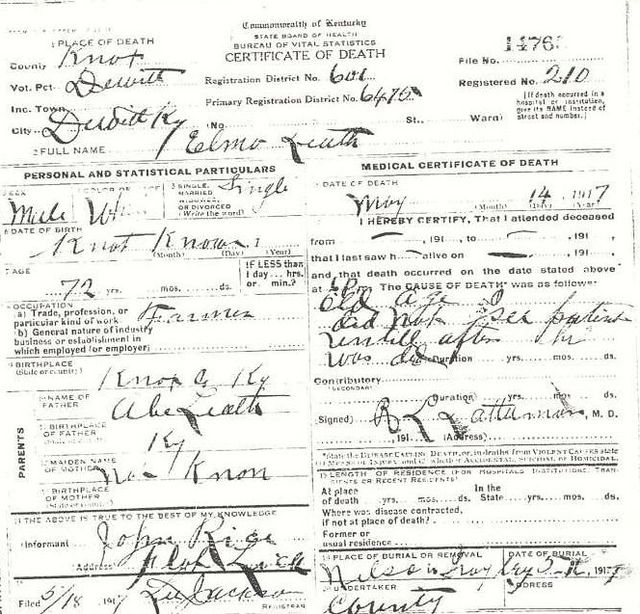 Commonwealth of Kentucky
STATE BOARD OF HEALTH
BUREAU OF VITAL STATISTICS
CERTIFICATE OF DEATH
1 PLACE OF DEATH
County Knox
Vot. Pct. Dewitt
Inc. Town
City Dewitt Ky No. St., Ward)
Registration District No. 601
Primary Registration District No. 6475
1476
File No.
Registered No. 210
[If death occurred in a hospital or institution, give its NAME instead of street and number.]
2 FULL NAME Elmo Leath
PERSONAL AND STATISTICAL PARTICULARS
SEX Male
COLOR W
SINGLE, MARRIED, WIDOWED, OR DIVORCED (Write the word) Single
DATE OF BIRTH Knot Known 1
(Month) (Day) (Year)
AGE 72 yrs. mos. ds.
IF LESS than 1 day... hrs. or min.?
OCCUPATION
(a) Trade, profession, or particular kind of work Farmer
(b) General nature of industry business or establishment in which employed (or employer)
BIRTHPLACE (State or country) Knox Co Ky
NAME OF FATHER Abe Leath
PARENTS
BIRTHPLACE OF FATHER Ky
MAIDEN NAME OF MOTHER No Knon
BIRTHPLACE OF MOTHER (State or country)
THE ABOVE IS TRUE TO THE BEST OF MY KNOWLEDGE
Informant John Rice
Address
Filed 5/18 1917 Jackson
REGISTRAR
MEDICAL CERTIFICATE OF DEATH
DATE OF DEATH
May 14, 1917
(Month) (Day) (Year)
I HEREBY CERTIFY, That I attended deceased
from , 191 , to , 191 ,
that I last saw h alive on , 191 ,
and that death occurred on the date stated above
at 6 Pm The CAUSE OF DEATH was as follows
Old age
did not see patient
untill after he
was ded
Duration yrs. mos. ds.
Contributory
(SECONDARY)
Duration yrs. mos. ds.
(Signed) M. D.
, 191 (Address)
State the DISEASE CAUSING DEATH, or, in deaths from VIOLENT CAUSES state (1) MEANS OF INJURY and (2) whether ACCIDENTAL, SUICIDAL, or HOMICIDAL.
LENGTH OF RESIDENCE (FOR HOSPITALS, INSTITUTIONS, TRANSIENTS OR RECENT RESIDENTS)
At place of death yrs. mos. ds. In the State yrs. mos. ds.
Where was disease contracted, if not at place of death?
Former or usual residence
PLACE OF BURIAL OR REMOVAL
DATE OF BURIAL
Nelson 1917
UNDERTAKER ADDRESS
County